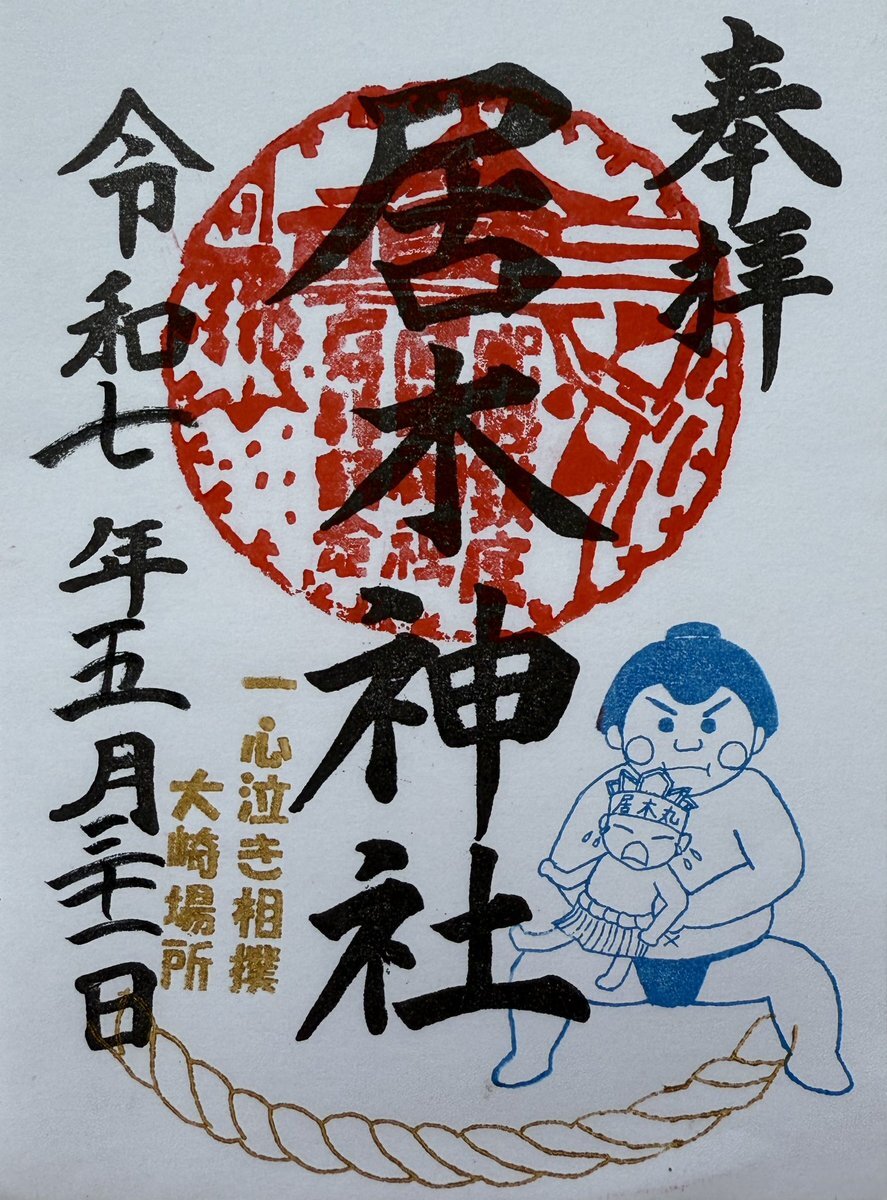 奉拝
居木神社
一心泣き相撲
大崎場所
令和七年五月三十一日
居木丸